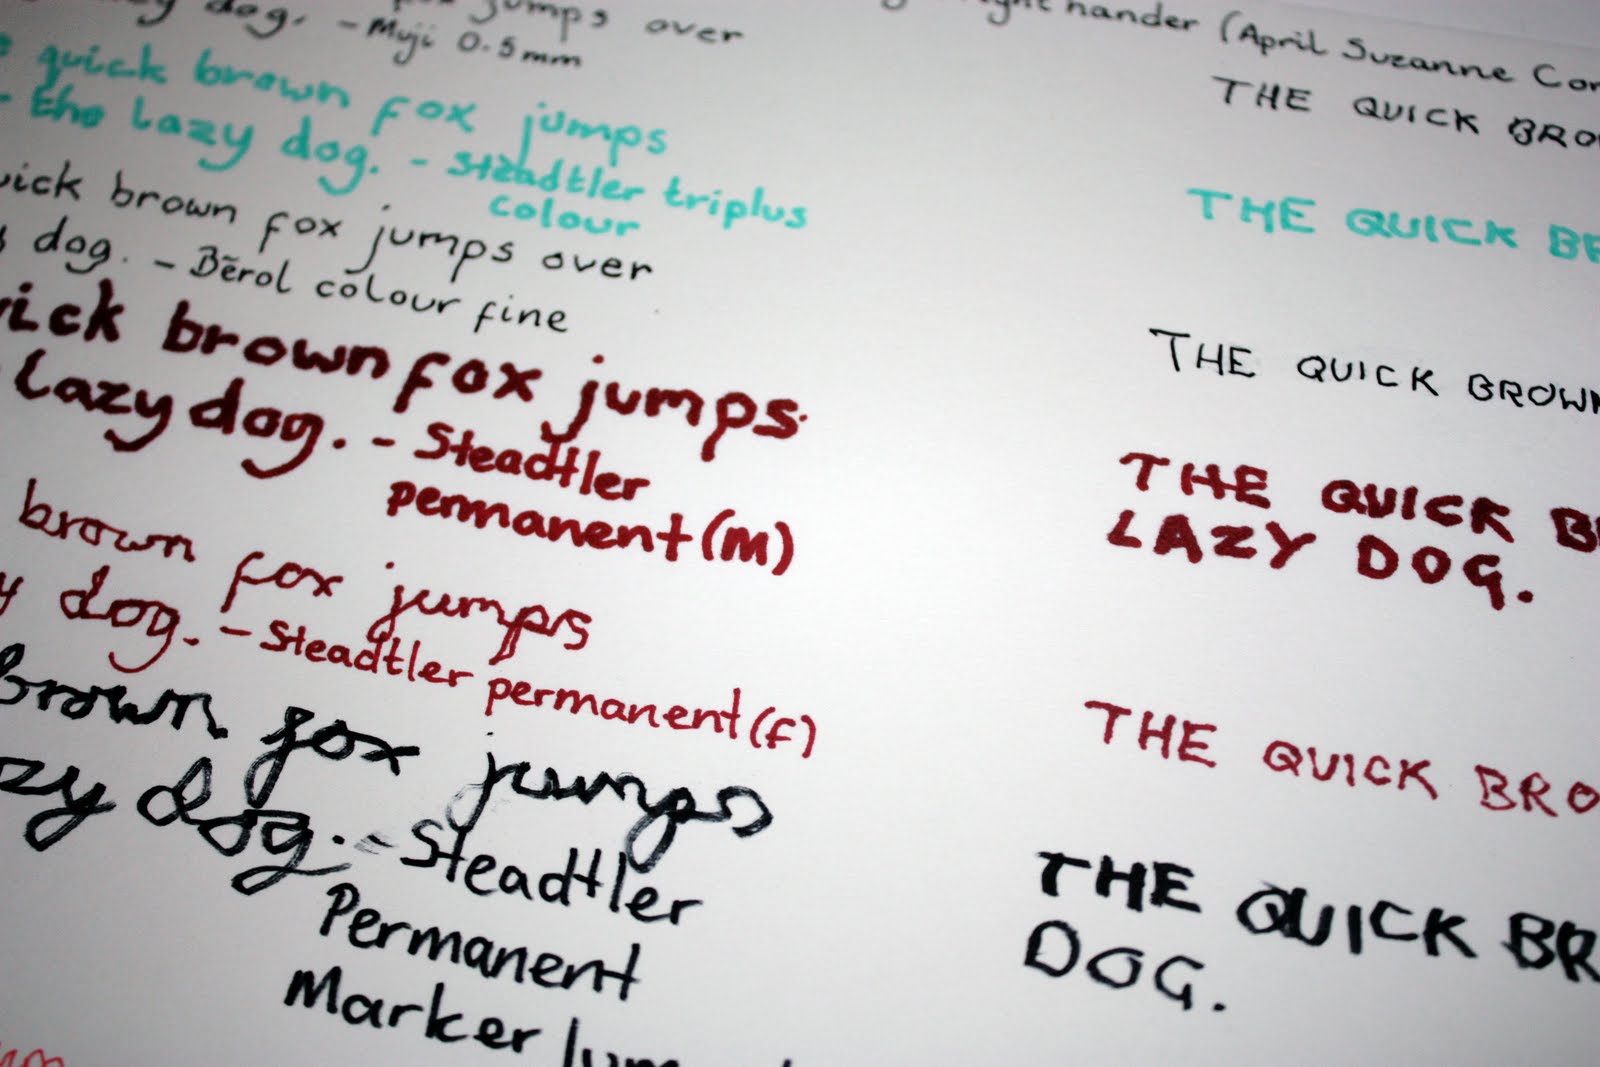 fox jumps over
lazy dog. - Muji 0.5mm
quick brown fox jumps
the lazy dog. - Steadtler triplus
colour
uick brown fox jumps over
dog. - Berol colour fine
uick brown fox jumps
lazy dog. - Steadtler
permanent (M)
brown fox jumps
y dog. - Steadtler permanent (f)
brown fox jumps
zy dog. - Steadtler
Permanent
Marker
right hander (April Suzanne Cor
THE QUICK BRO
THE QUICK BR
THE QUICK BROWN
THE QUICK B
LAZY DOG.
THE QUICK BRO
THE QUICK BR
DOG.